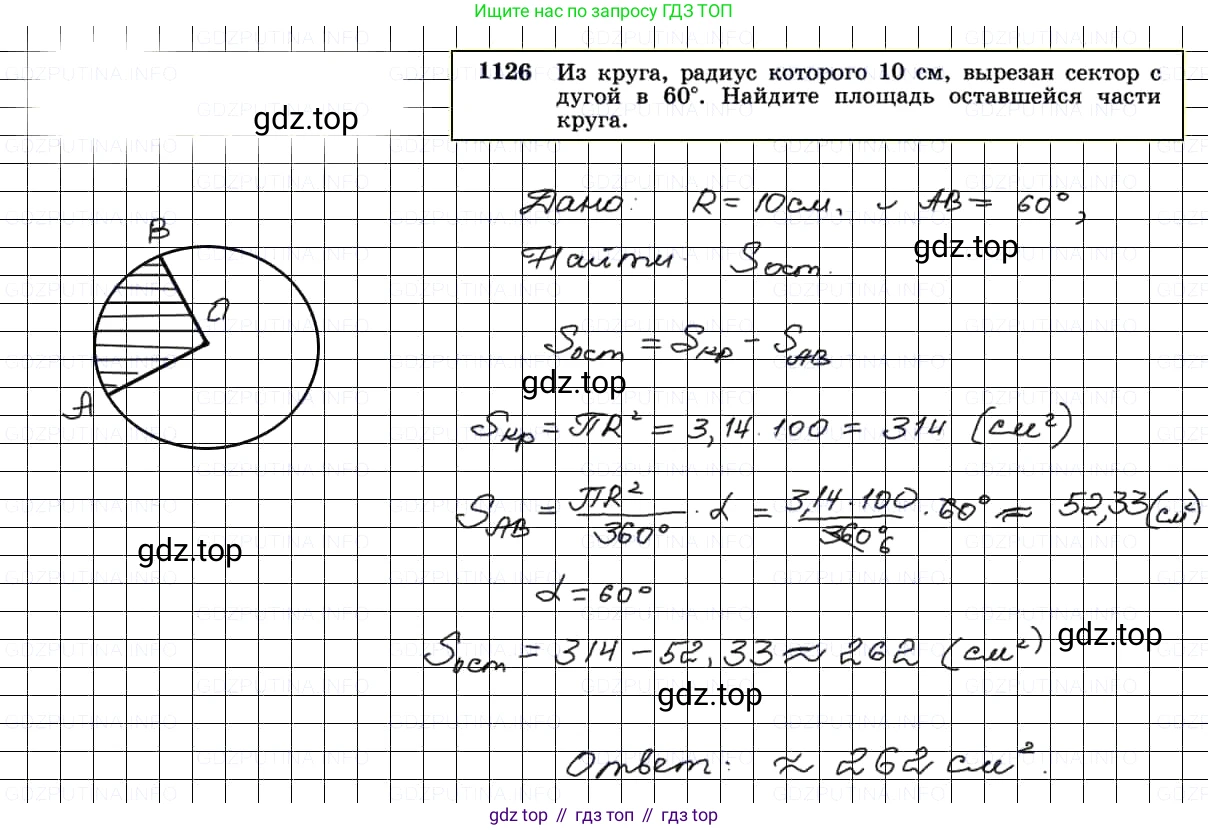 Ищите нас по запросу ГДЗ ТОП
1126 Из круга, радиус которого 10 см, вырезан сектор с
дугой в 60°. Найдите площадь оставшейся части
круга.
gdz.top
Дано: R = 10см, ◡ AB = 60°,
Найти: Sост.
gdz.top
B
O
A
Sост = Sкр - SAB
gdz.top
Sкр = ПR² = 3,14 · 100 = 314 (см²)
SAB = ПR²/360° · α = 3,14·100/360° 6 · 60° ≈ 52,33 (см²)
gdz.top
α = 60°
Sост = 314 - 52,33 ≈ 262 (см²)
gdz.top
gdz.top
Ответ: ≈ 262 см².
gdz топ // гдз топ // гдз top
GDZPUTINA.INFO